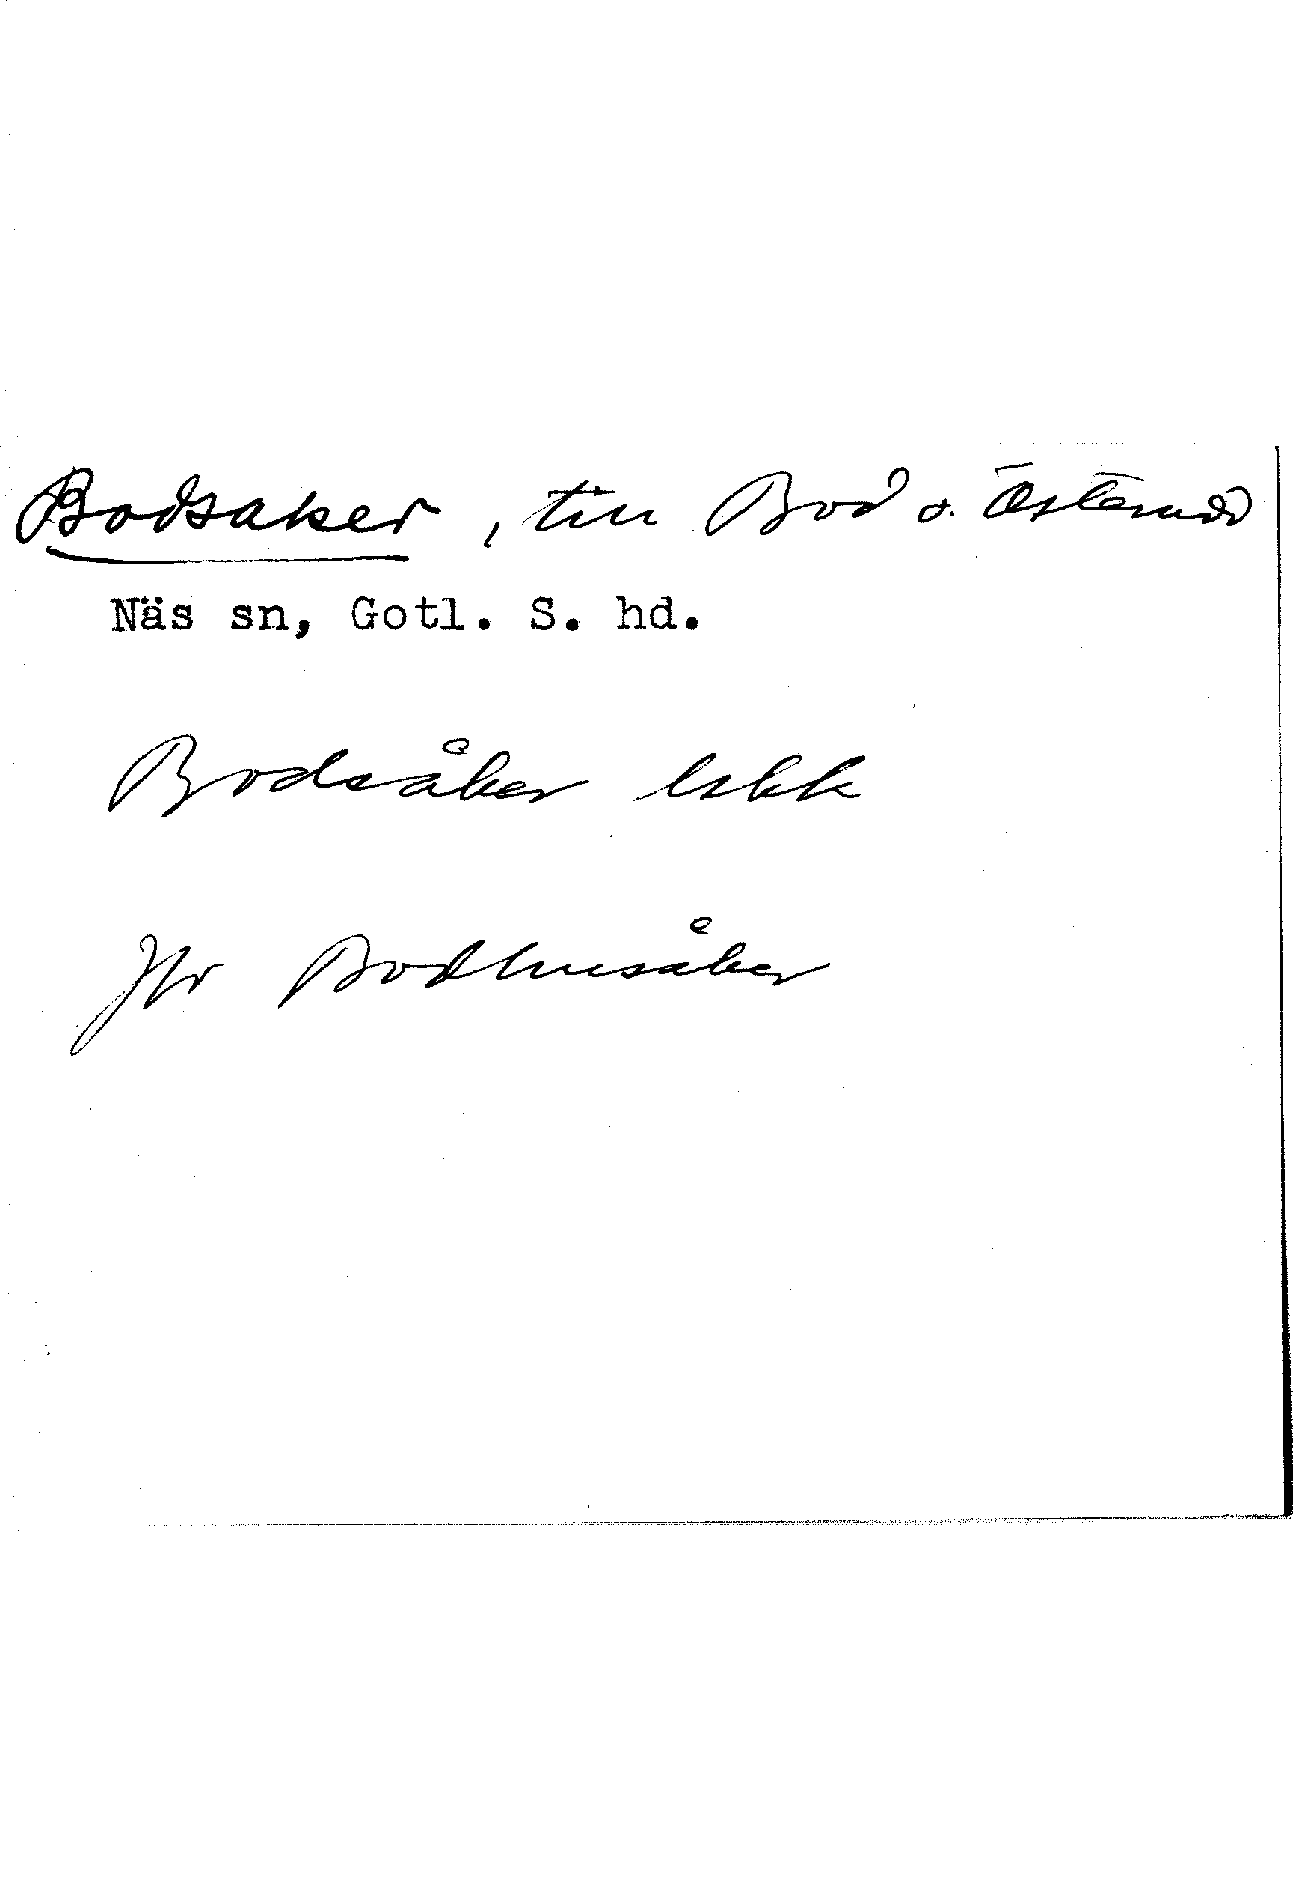 Bodsåker, till Bod o. Österudd
Näs sn, Gotl. S. hd.
Bodsåker lskk
Jfr Bodhusåker